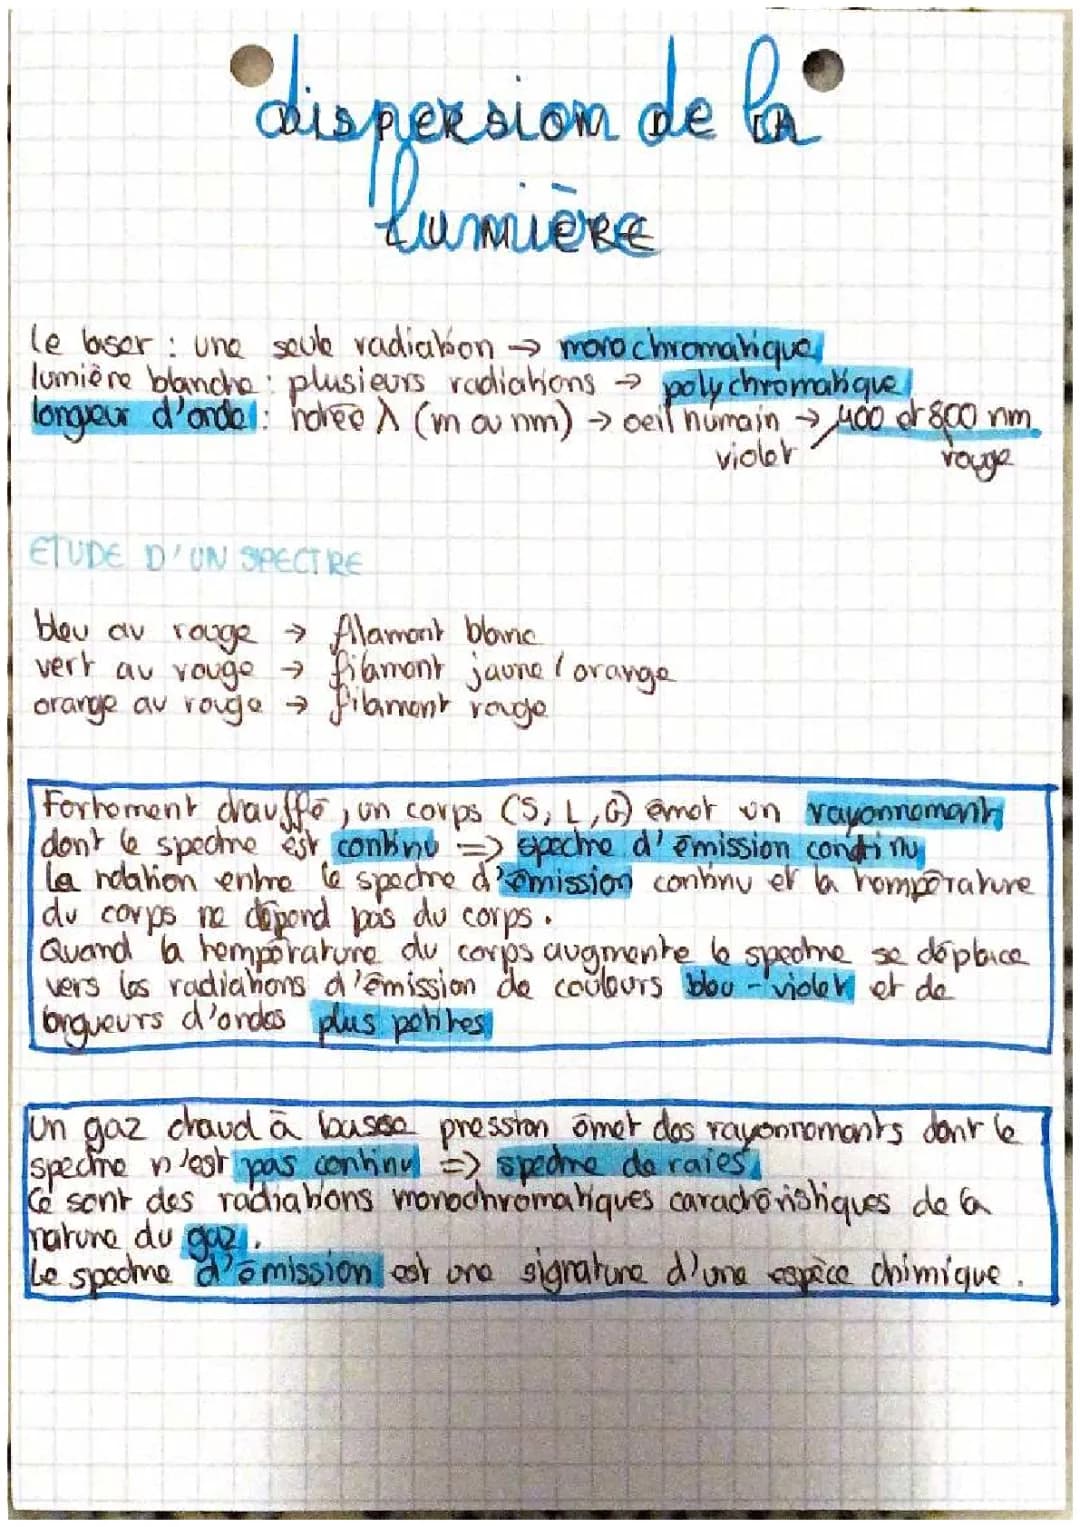 dispersion de la
lumière
le laser : une seule radiation → monochromatique
lumière blanche : plusieurs radiations → polychromatique
longueur d'onde : notée λ (m ou nm) → oeil humain → 400 et 800 nm
violet rouge
ETUDE D'UN SPECTRE
bleu au rouge → filament blanc
vert au rouge → filament jaune / orange
orange au rouge → filament rouge
Fortement chauffé, un corps (S, L, G) émet un rayonnement
dont le spectre est continu => spectre d'émission continu
La relation entre le spectre d'émission continu et la température
du corps ne dépend pas du corps.
Quand la température du corps augmente le spectre se déplace
vers les radiations d'émission de couleurs bleu-violet et de
longueurs d'ondes plus petites
Un gaz chaud à basse pression émet des rayonnements dont le
spectre n'est pas continu => spectre de raies
Ce sont des radiations monochromatiques caractéristiques de la
nature du gaz.
Le spectre d'émission est une signature d'une espèce chimique.